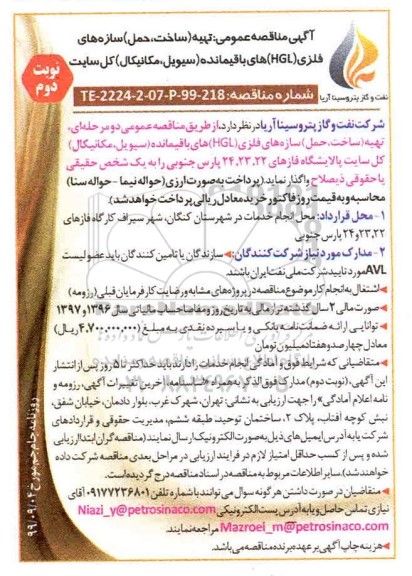 آگهی مناقصه عمومی: تهیه (ساخت، حمل) سازه های
فلزی (HGL) های باقیمانده (سیویل، مکانیکال) کل سایت
نوبت
دوم
شماره مناقصه: TE-2224-2-07-P-99-218
نفت و گاز پتروسینا آریا
شرکت نفت و گاز پتروسینا آریا در نظر دارد، از طریق مناقصه عمومی دو مرحله ای،
تهیه (ساخت، حمل) سازه های فلزی (HGL) های باقیمانده (سیویل، مکانیکال)
کل سایت پالایشگاه فازهای ۲۲،۲۳،۲۴ پارس جنوبی را به یک شخص حقیقی
یا حقوقی ذیصلاح واگذار نماید. (پرداخت به صورت ارزی (حواله نیما - حواله سنا)
محاسبه و به قیمت روز فاکتور خرید معادل ریالی پرداخت خواهد شد).
۱- محل قرارداد: محل انجام خدمات در شهرستان کنگان، شهر سیراف کارگاه فازهای
۲۲،۲۳ و ۲۴ پارس جنوبی
۲- مدارک مورد نیاز شرکت کنندگان: سازندگان یا تامین کنندگان باید عضو لیست
AVL مورد تایید شرکت ملی نفت ایران باشند.
اشتغال به انجام کار موضوع مناقصه در پروژه های مشابه و رضایت کارفرمایان قبلی (رزومه)
صورت مالی ۲ سال گذشته، تراز مالی به تاریخ روز و مفاصا حساب مالیاتی سال ۱۳۹۶ و ۱۳۹۷
توانایی ارائه ضمانت نامه بانکی و یا سپرده نقدی به مبلغ (۴،۷۰۰،۰۰۰،۰۰۰ ریال)
معادل چهارصد و هفتاد میلیون تومان
متقاضیانی که شرایط فوق و آمادگی انجام خدمات را دارند باید حداکثر تا ۵ روز پس از انتشار
این آگهی، (نوبت دوم) مدارک فوق الذکر به همراه (اساسنامه، آخرین تغییرات آگهی، رزومه و
نامه اعلام آمادگی» را جهت ارزیابی به نشانی: تهران، شهرک غرب، بلوار دادمان، خیابان شفق،
نبش کوچه آفتاب، پلاک ۲، ساختمان توحید، طبقه ششم، مدیریت حقوقی و قراردادهای
شرکت یا به آدرس ایمیل های ذیل به صورت الکترونیک ارسال نمایند (مناقصه گران ابتدا ارزیابی
شده و پس از کسب حداقل امتیاز لازم در فرایند ارزیابی در مراحل بعدی مناقصه شرکت داده
خواهند شد.). سایر اطلاعات مربوط به مناقصه در اسناد مناقصه درج گردیده است.
متقاضیان در صورت داشتن هرگونه سوال می توانند با شماره تلفن ۰۹۱۷۷۲۳۶۸۰۱ آقای
نیازی تماس حاصل و یا به آدرس پست الکترونیکی Niazi_y@petrosinaco.com
Mazroei_m@petrosinaco.com مراجعه نمایند.
هزینه چاپ آگهی بر عهده برنده مناقصه می باشد.
روزنامه جام جم مورخ ۹۹/۰۹/۰۴